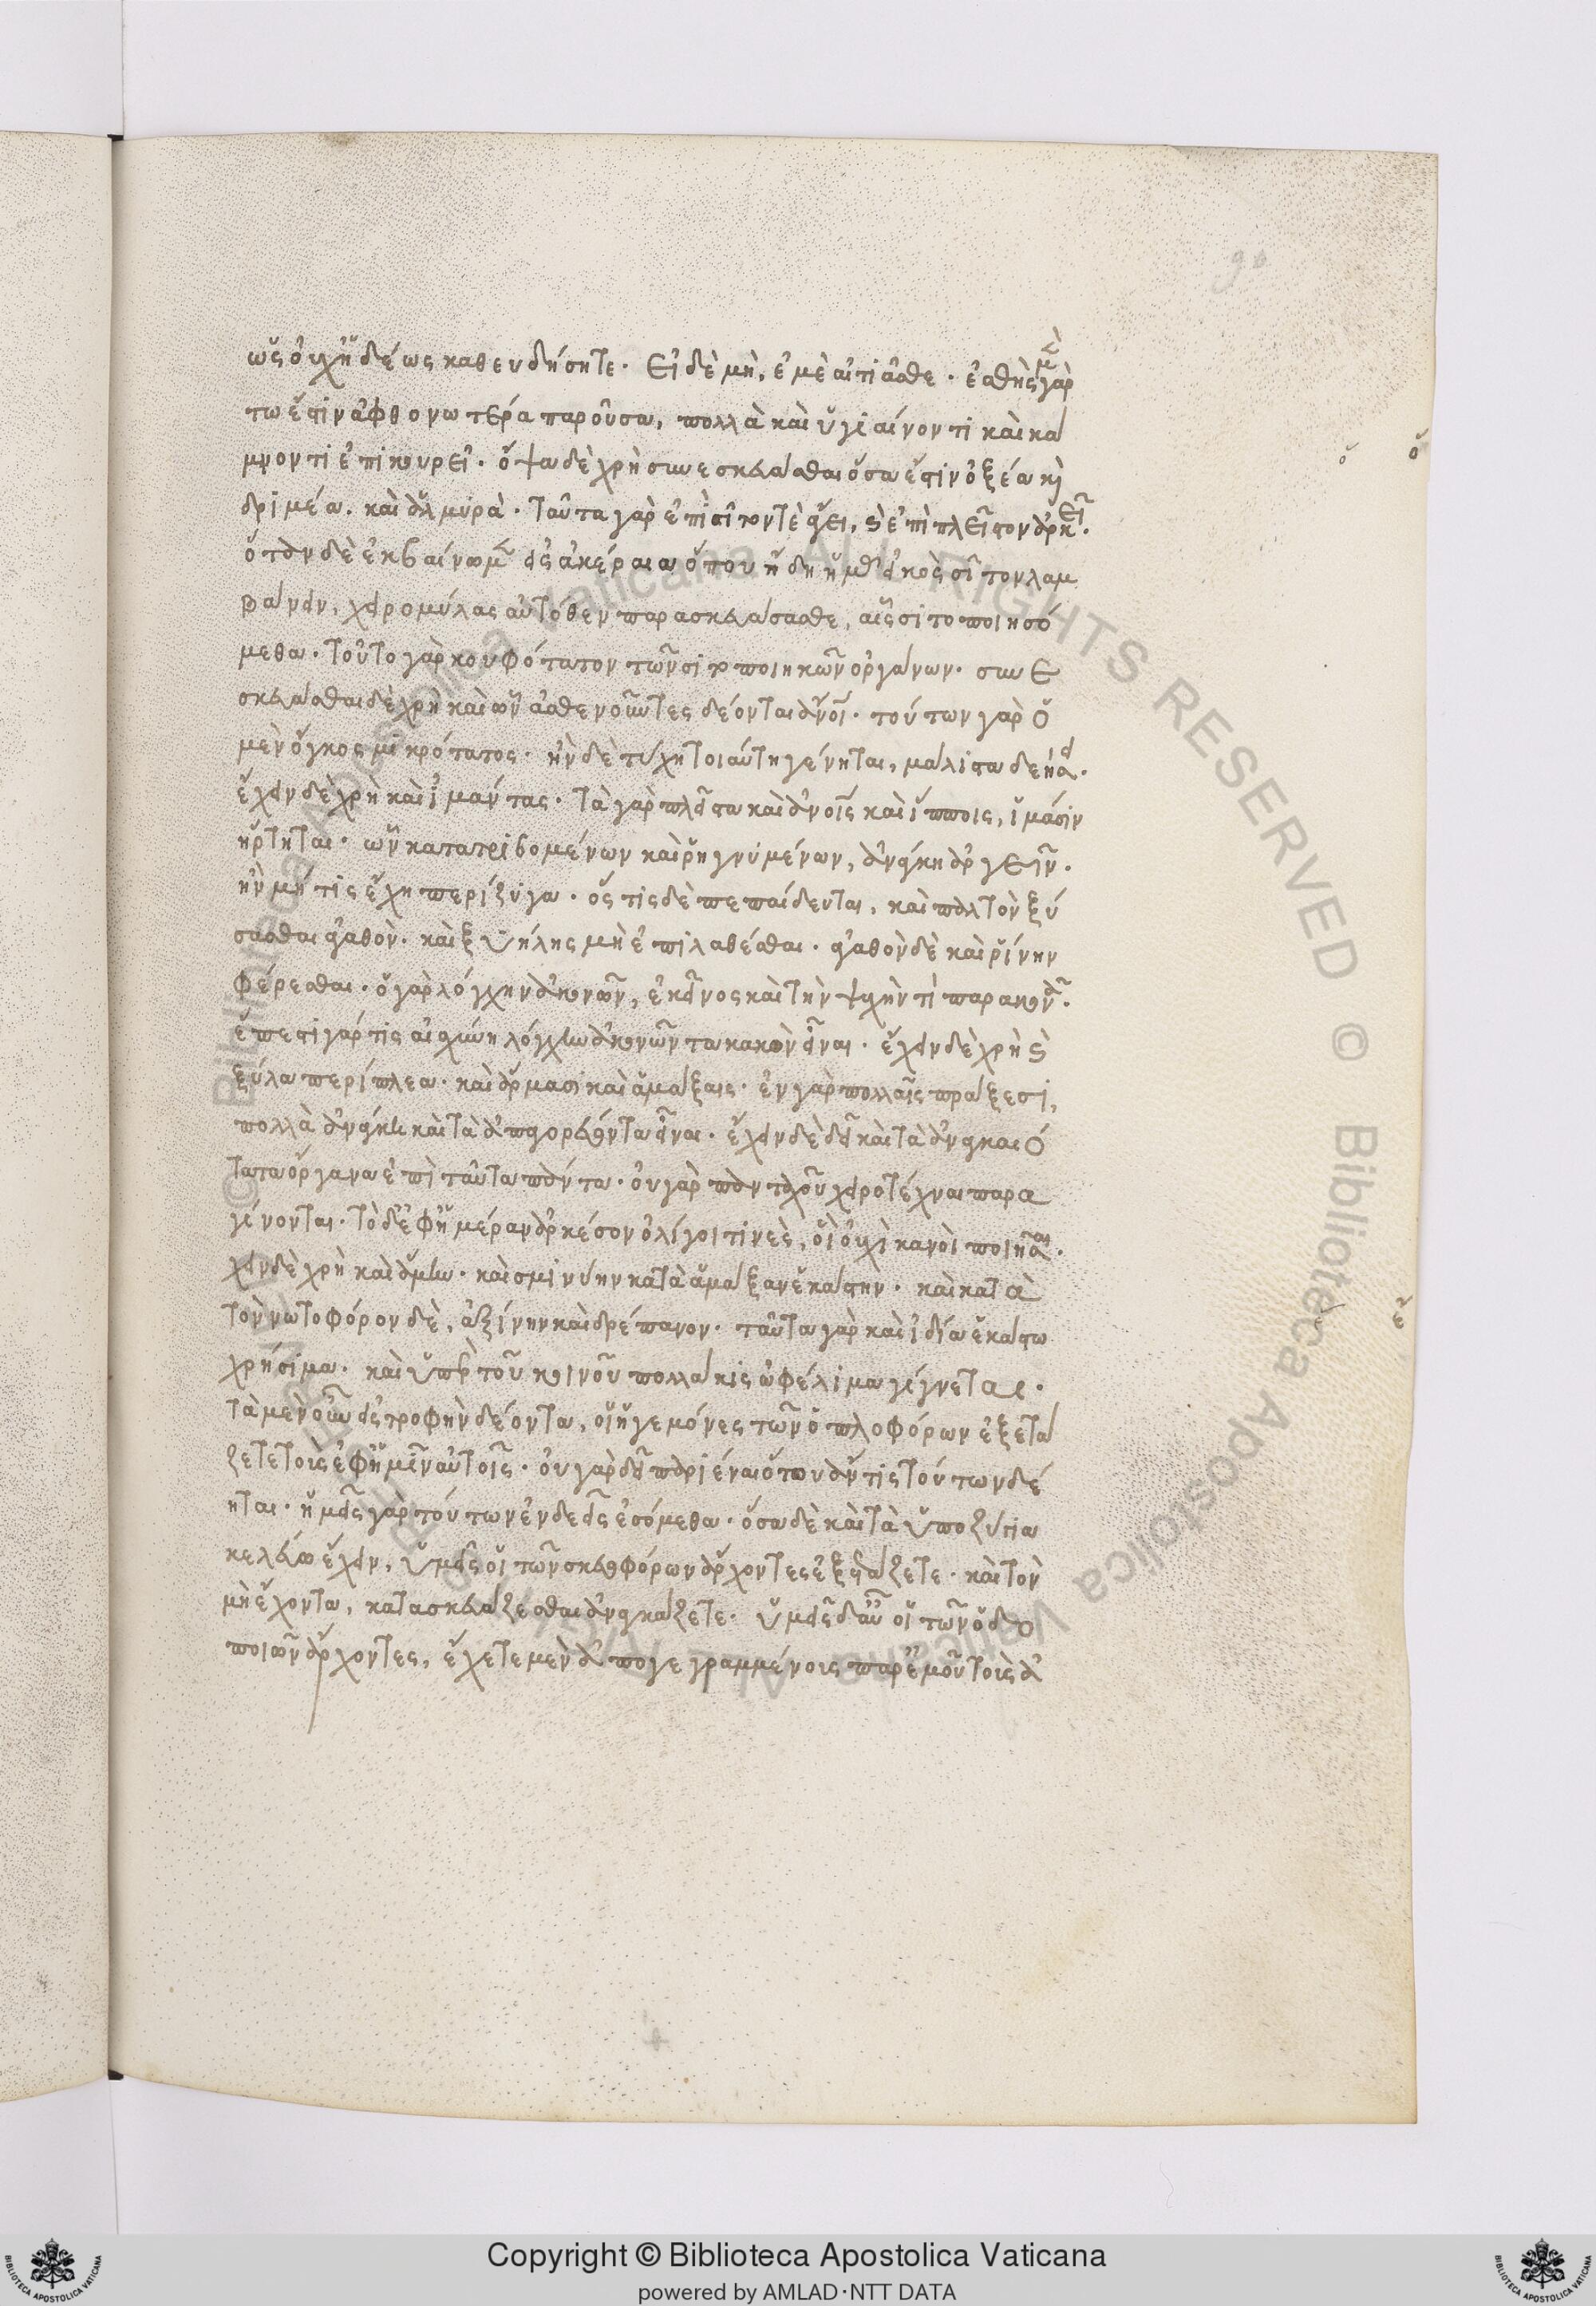 ὡς οὐχ ἡδέως καθευδήσητε· εἰ δὲ μὴ, ἐμὲ αἰτιᾶσθε· ἐσθὴς μὲν γὰρ
τω ἔστιν ἀφθονωτέρα παροῦσα, πολλὰ καὶ ὑγιαίνοντι καὶ κά
μνοντι ἐπικουρεῖ· ὄψα δὲ χρὴ συνεσκευάσθαι ὅσα ἔστιν ὀξέα καὶ
δριμέα. καὶ ἁλμυρὰ· ταῦτα γὰρ ἐπὶ σῖτόν τὲ ἄγει, καὶ ἐπὶ πλεῖστον ἀρκεῖ·
ὅταν δὲ ἐκβαίνωμεν εἰς ἀκέραια ὅπου ἤδη ἡμᾶς εἰκὸς σῖτον λαμ
βάνειν, χειρομύλας αὐτόθεν παρασκευάσασθε, αἷς σιτοποιησό
μεθα· τοῦτο γὰρ κουφότατον τῶν σιτοποιηκῶν ὀργάνων· συνε
σκευάσθαι δὲ χρὴ καὶ ὧν ἀσθενοῦντες δέονται ἄνοι· τούτων γὰρ ὁ
μὲν ὄγκος μικρότατος· ἢν δὲ τύχη τοιαύτη γένηται, μάλιστα δεήσει·
ἔχειν δὲ χρὴ καὶ ἱμάντας· τὰ γὰρ πλεῖστα καὶ ἀνοις καὶ ἵπποις, ἱμάσιν
ἤρτηται· ὧν κατατριβομένων καὶ ῥηγνυμένων, ἀνάγκη ἀργεῖν·
ἢν μή τις ἔχη περίζυγα· ὅς τις δὲ πεπαίδευται, καὶ παλτὸν ξύ
σασθαι ἀγαθὸν· καὶ ξυήλης μὴ ἐπιλαθέσθαι· ἀγαθὸν δὲ καὶ ῥίνην
φέρεσθαι· ὁ γὰρ λόγχην ἀκονῶν, ἐκεῖνος καὶ τὴν ψυχὴν τὶ παρακονᾶ·
ἔπεστι γάρ τις αἰσχύνη λόγχην ἀκονῶντα κακὸν εἶναι· ἔχειν δὲ χρὴ καὶ
ξύλα περίπλεα· καὶ ἅρμασι καὶ ἁμάξαις· ἐν γὰρ πολλαῖς πράξεσι,
πολλὰ ἀνάγκη καὶ τὰ ἀπαγορεύοντα εἶναι· ἔχειν δὲ δεῖ καὶ τὰ ἀναγκαιό
τατα ὄργανα ἐπὶ ταῦτα πάντα· οὐ γὰρ πανταχοῦ χειροτέχναι παρα
γένονται· τὸ δ' ἐφ' ἡμέραν ἀρκέσον ὀλίγοι τινὲς, οἳ οὐχ ἱκανοὶ ποιῆσαι·
χειν δὲ χρὴ καὶ ἄμην· καὶ σμινύην κατὰ ἅμαξαν ἑκάστην· καὶ κατὰ
τὸν νωτοφόρον δὲ, ἀξίνην καὶ δρέπανον· ταῦτα γὰρ καὶ ἰδία ἑκάστω
χρήσιμα· καὶ ὑπὲρ τοῦ κοινοῦ πολλάκις ὠφέλιμα γίγνεται·
τὰ μὲν οὖν εἰς τροφὴν δέοντα, οἱ ἡγεμόνες τῶν ὁπλοφόρων ἐξετά
ζετε τοὺς ἐφ' ἡμῖν αὐτοῖς· οὐ γὰρ δεῖ παριέναι ὅτου ἄν τις τούτων δέ
ηται· ἡμεῖς γὰρ τούτων ἐνδεεῖς ἐσόμεθα· ὅσα δὲ κατὰ ὑποζύγια
κελεύω ἔχειν, ὑμεῖς οἱ τῶν σκευοφόρων ἄρχοντες ἐξετάζετε· καὶ τὸν
μὴ ἔχοντα, κατασκευάζεσθαι ἀναγκάζετε· ὑμεῖς δ' αὖ οἱ τῶν ὁδο
ποιῶν ἄρχοντες, ἔχετε μὲν ἀπογεγραμμένους παρ' ἐμοῦ τοὺς ἀ